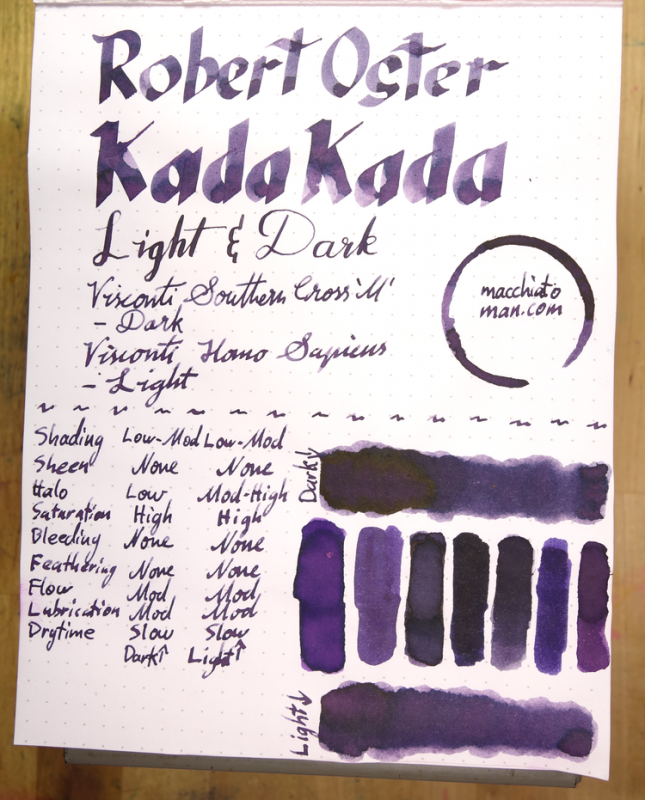 Robert Oster
Kada Kada
Light & Dark
Visconti Southern Cross 'M'
- Dark
Visconti Homo Sapiens
- Light
macchiato
man.com
Shading Low-Mod Low-Mod
Sheen None None
Halo Low Mod-High
Saturation High High
Bleeding None None
Feathering None None
Flow Mod Mod
Lubrication Mod Mod
Drytime Slow Slow
Dark↑ Light↑
Dark↓
Light↓